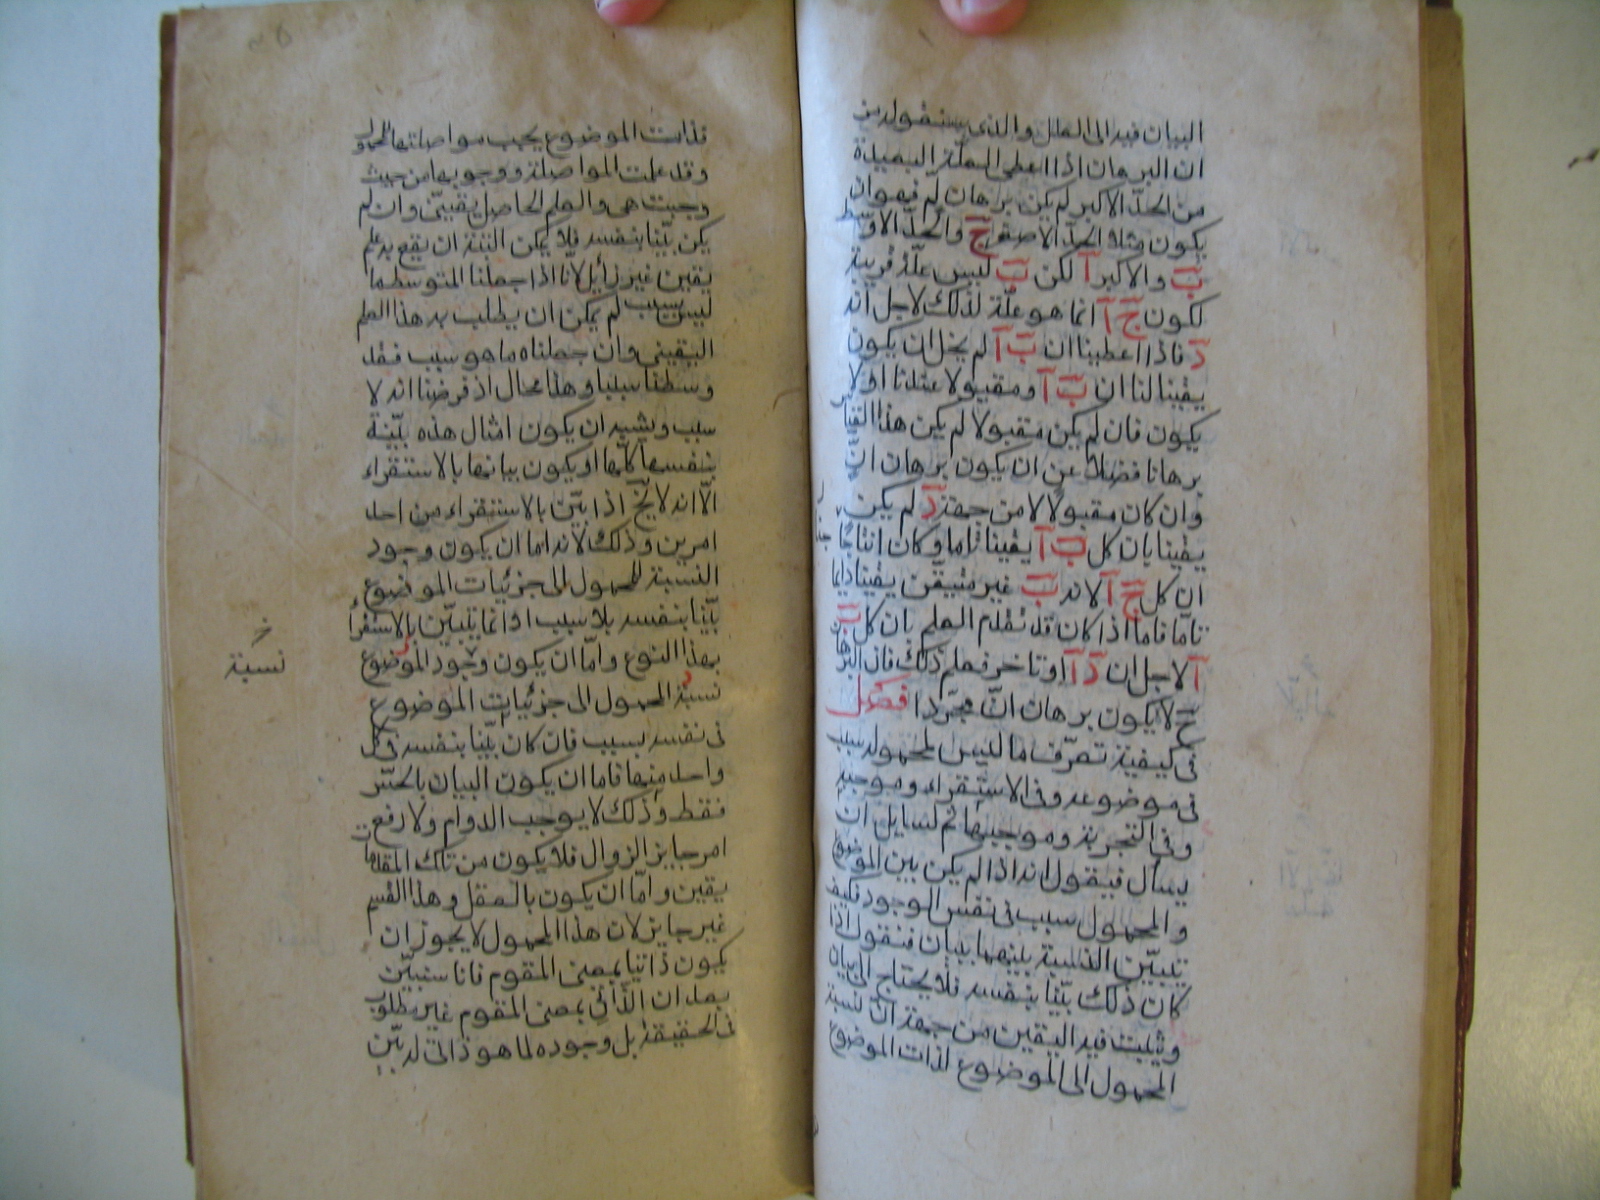 البيان فيه الى العلل والذي سنقوله من
ان البرهان اذا اعطى العلة البعيدة
من الحدّ الاكبر لم يكن برهان لم فهو ان
يكون مثلا الحدّ الاصغر ج والحدّ الاوسط
ب والاكبر ا لكن ب ليس علّة قريبة
لكون ج ا انما هو علّة لذلك لاجل انه
د فاذا اعطينا ان ب ا لم يخل ان يكون
يقينا لنا ان ب ا ومقبولا عندنا او لا
يكون فان لم يكن مقبولا لم يكن هذا القياس
برهانا فضلا عن ان يكون برهان انّ
وان كان مقبولا لا من جهة د لم يكن
يقينا بان كل ب ا يقينا تاما وكان انتاجا
ان كل ج ا لانه ب غير متيقّن يقينا دايما
تامّا فاما اذا كان قد تقدم العلم بان كل ب
ا لاجل ان د ا او تاخر فعلم ذلك فان البرهان
ح لا يكون برهان انّ مجرّدا فصل
فى كيفية تعرّف ما ليس لمحموله سبب
فى موضوعه وفى الاستقراء وموجبه
وفى التجربة وموجبها ثم لسايل ان
يسأل فيقول انه اذا لم يكن بين الموضوع
والمحمول سبب فى نفس الوجود فكيف
تتبيّن النسبة بينهما ببيان فنقول اذا
كان ذلك بيّنا بنفسه فلا يحتاج الى بيان
ويثبت فيه اليقين من جهة انّ نسبة
المحمول الى الموضوع لذات الموضوع
فذات الموضوع يجب مواصلتها للمحمول
وقد علمت المواصلة ووجوبها من حيث
وجبت هى والعلم الحاصل يقينىّ وان لم
يكن بيّنا بنفسه فلا يمكن البتة ان يقع به علم
يقين غير زايل لأنّا اذا جعلنا المتوسط ما
ليس بسبب لم يمكن ان يطلب به هذا العلم
اليقينى وان جعلناه ما هو سبب فقد
وسطنا سببا وهذا محال اذ فرضنا انه لا
سبب ويشبه ان يكون امثال هذه بيّنة
بنفسها كلّها او يكون بيانها بالاستقراء
الّا انه لا يخ اذا بيّن بالاستقراء من احد
امرين وذلك لانه اما ان يكون وجود
النسبة للمحمول الى جزئيات الموضوع
بيّنا بنفسه بلا سبب اذ انما يتبيّن بالاستقراء
بهذا النوع وامّا ان يكون وجود الموضوع
نسبة المحمول الى جزئيات الموضوع
فى نفسه بسبب فان كان بيّنا بنفسه فى كل
واحد منها فاما ان يكون البيان بالحسّ
فقط وذلك لا يوجب الدوام ولا رفع
امر جايز الزوال فلا يكون من تلك المقدمات
يقين وامّا ان يكون بالعقل وهذا القسم
غير جايز لان هذا المحمول لا يجوز ان
يكون ذاتيا بمعنى المقوم فانا سنبيّن
بعد ان الذّاتي بمعنى المقوم غير مطلوب
فى الحقيقة بل وجوده لما هو ذاتى له بيّن
خ
نسبة